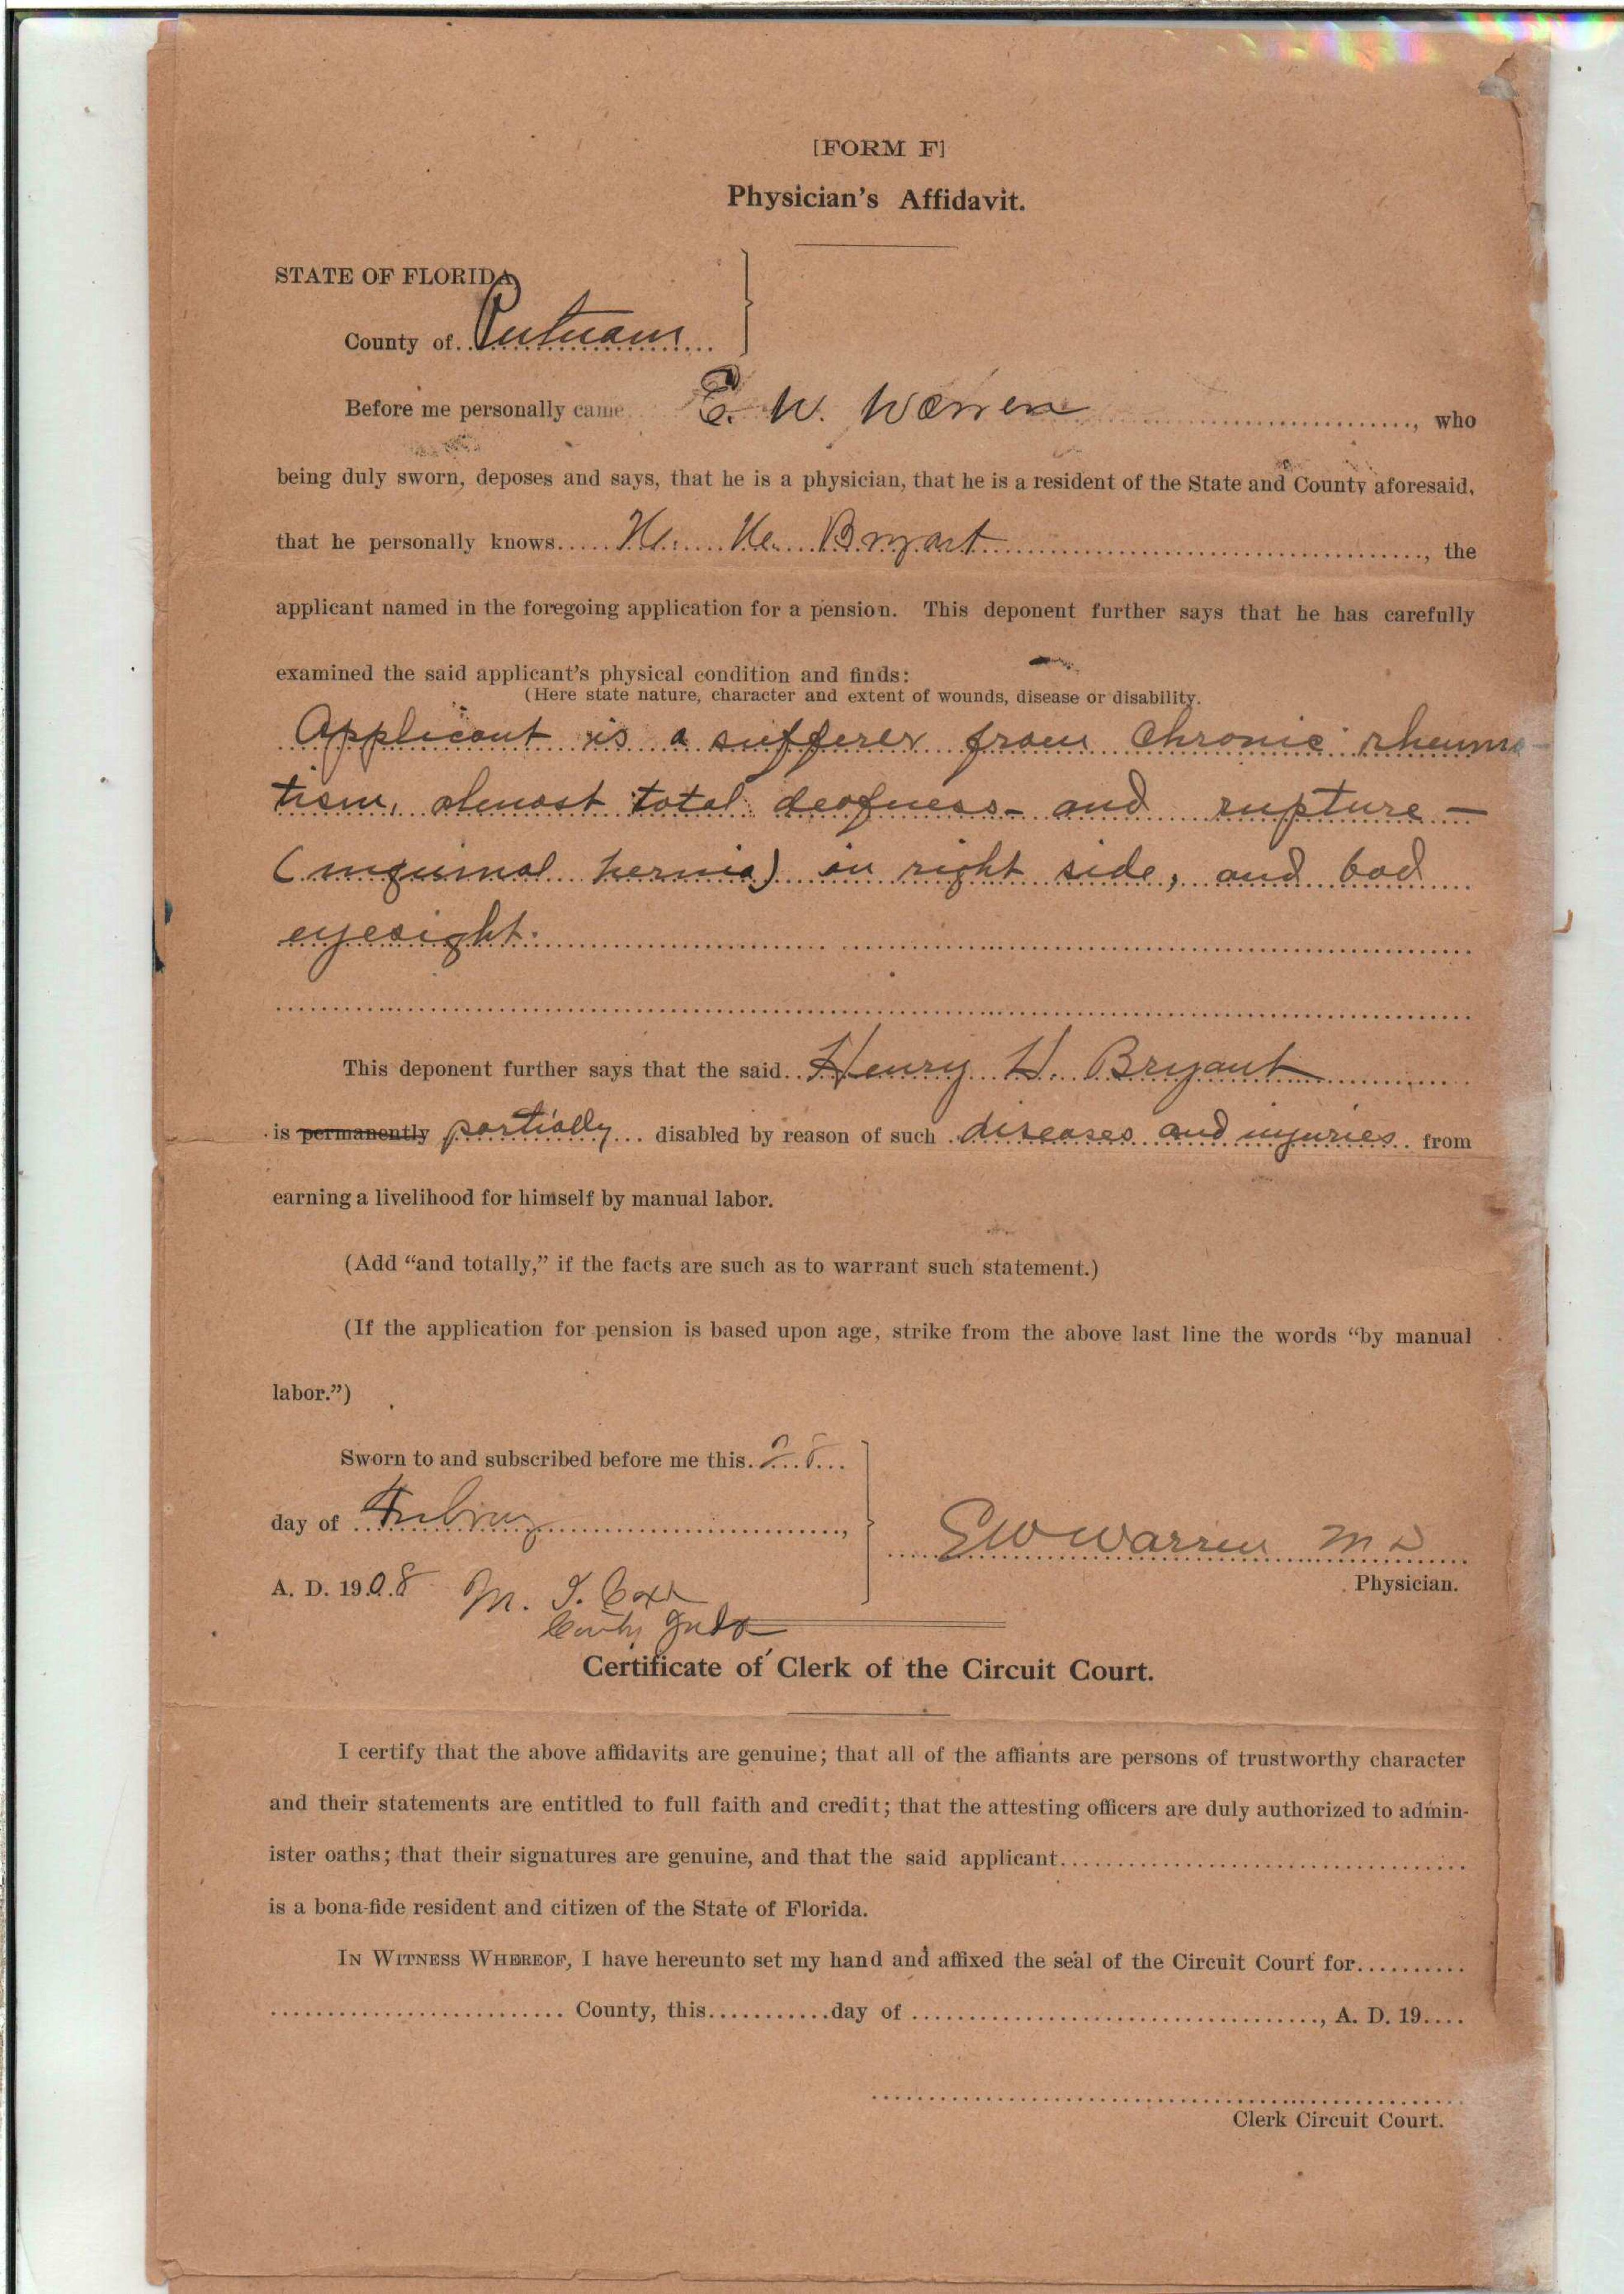 [FORM F]
Physician's Affidavit.
STATE OF FLORIDA
County of Putnam
Before me personally came E. W. Warren, who
being duly sworn, deposes and says, that he is a physician, that he is a resident of the State and County aforesaid,
that he personally knows H. H. Bryant, the
applicant named in the foregoing application for a pension. This deponent further says that he has carefully
examined the said applicant's physical condition and finds:
(Here state nature, character and extent of wounds, disease or disability.
Applicant is a sufferer from Chronic rheuma-
tism, almost total deafness - and rupture -
(inguinal hernia) on right side, and bad
eyesight.
This deponent further says that the said Henry H. Bryant
is permanently partially disabled by reason of such diseases and injuries from
earning a livelihood for himself by manual labor.
(Add "and totally," if the facts are such as to warrant such statement.)
(If the application for pension is based upon age, strike from the above last line the words "by manual
labor.")
Sworn to and subscribed before me this 28
day of February,
A. D. 1908 M. I. Cox
County Judge
E W Warren M D
Physician.
Certificate of Clerk of the Circuit Court.
I certify that the above affidavits are genuine; that all of the affiants are persons of trustworthy character
and their statements are entitled to full faith and credit; that the attesting officers are duly authorized to admin-
ister oaths; that their signatures are genuine, and that the said applicant
is a bona-fide resident and citizen of the State of Florida.
IN WITNESS WHEREOF, I have hereunto set my hand and affixed the seal of the Circuit Court for
County, this day of , A. D. 19
Clerk Circuit Court.